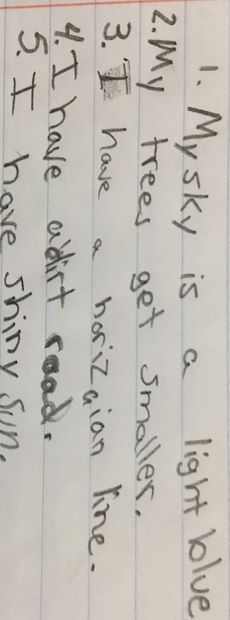 1. My sky is a light blue
2. My trees get smaller.
3. I have a horizaian line.
4. I have a dirt road.
5. I have shiny sun.